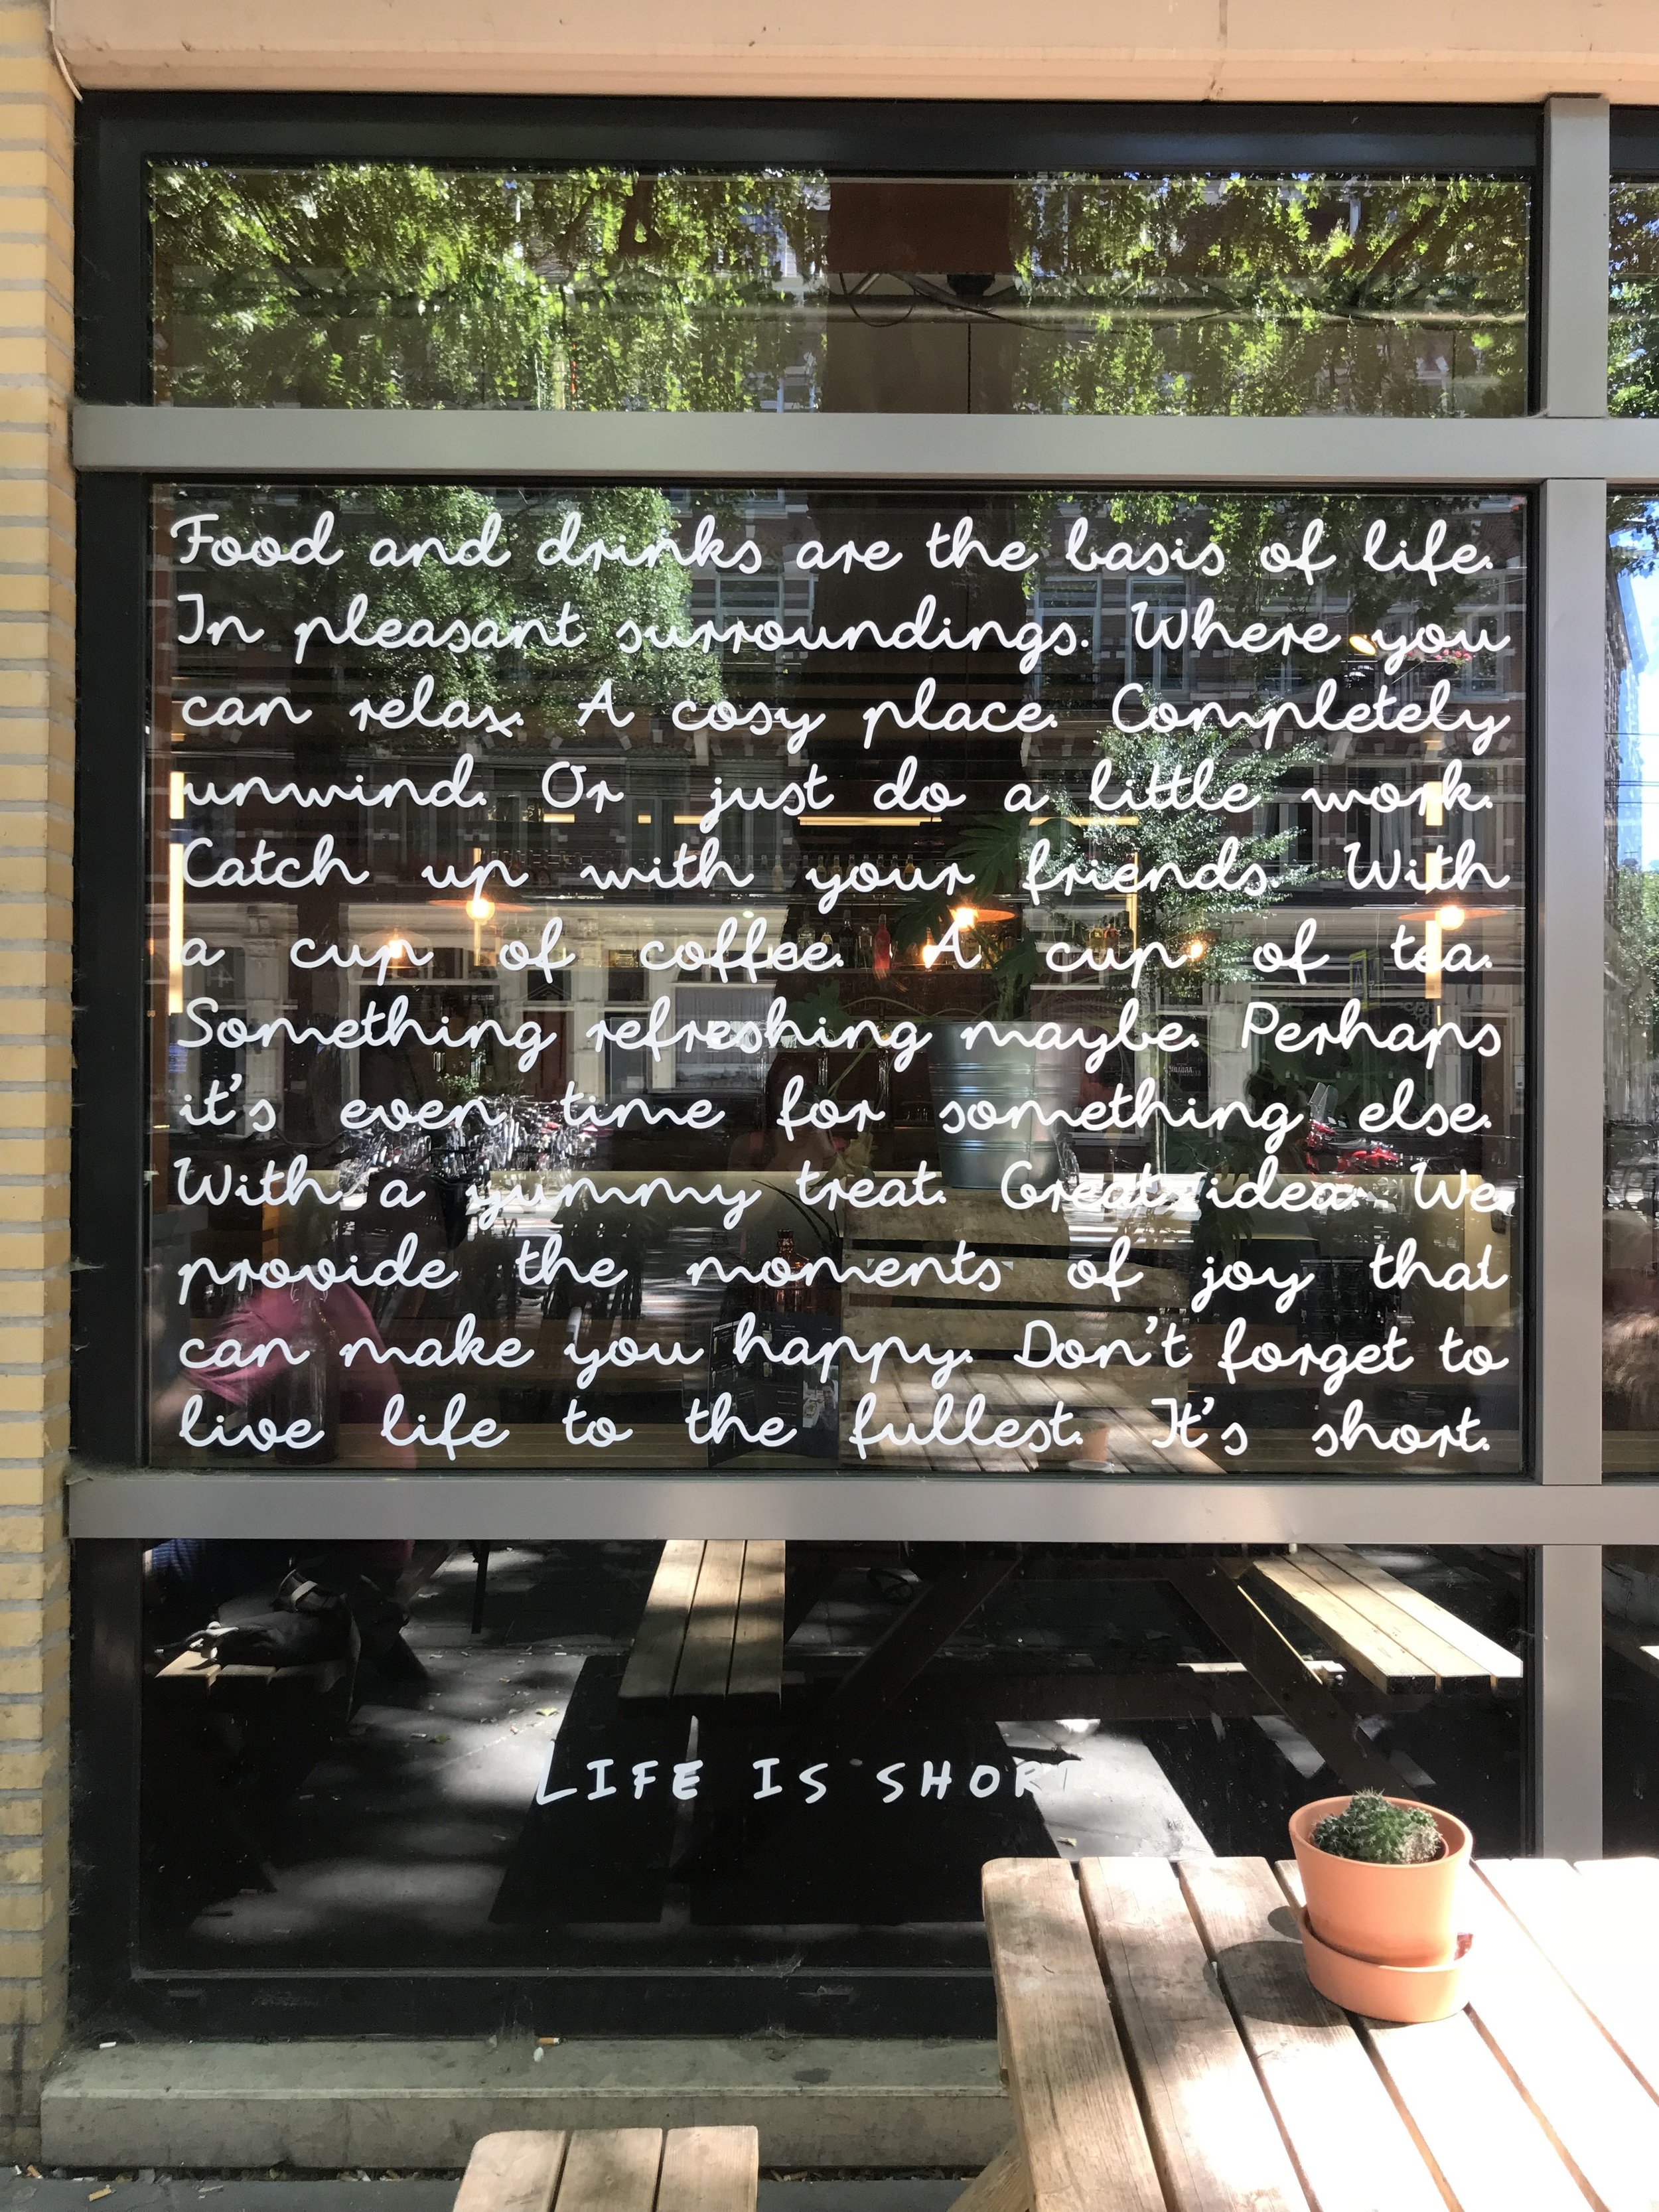 Food and drinks are the basis of life.
In pleasant surroundings. Where you
can relax. A cosy place. Completely
unwind. Or just do a little work.
Catch up with your friends. With
a cup of coffee. A cup of tea.
Something refreshing maybe. Perhaps
it's even time for something else.
With a yummy treat. Great idea. We
provide the moments of joy that
can make you happy. Don't forget to
live life to the fullest. It's short.
LIFE IS SHORT